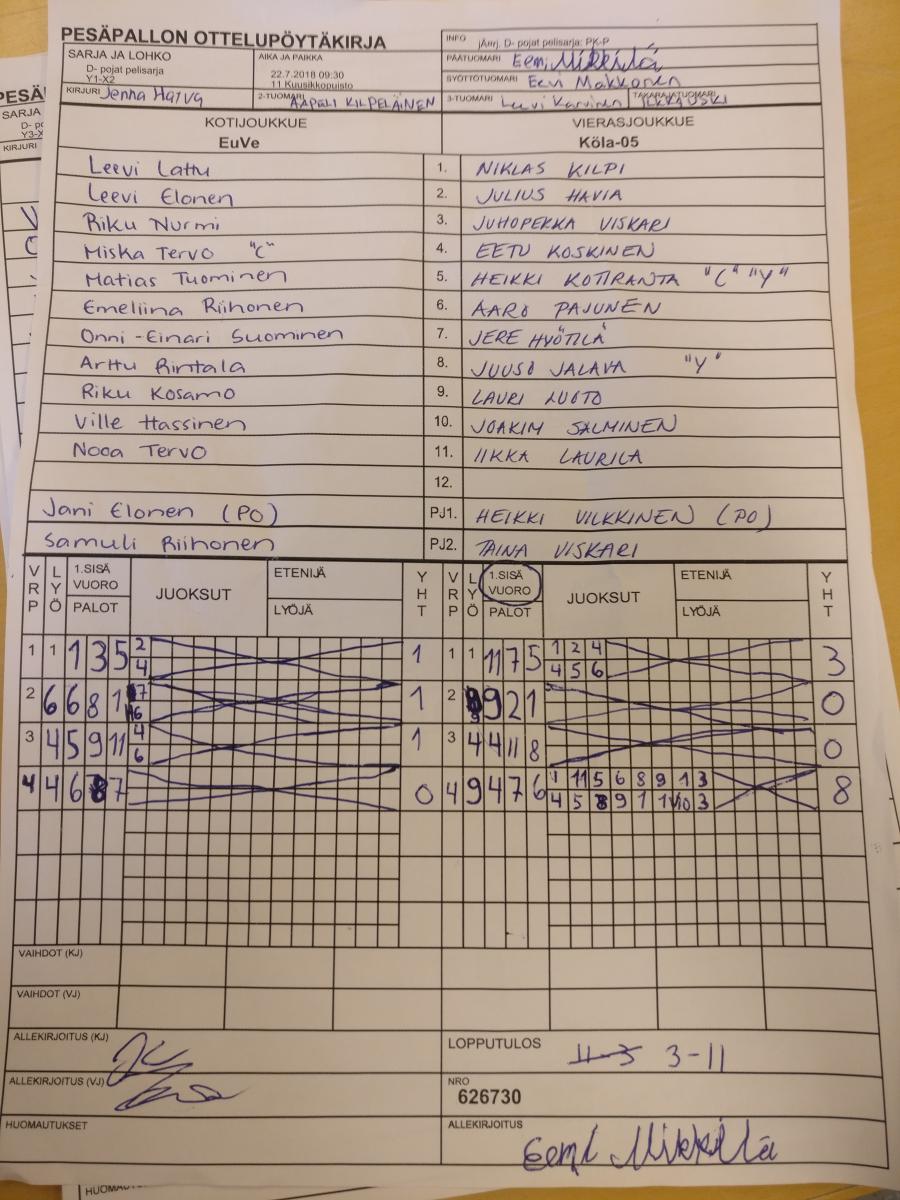 PESÄPALLON OTTELUPÖYTÄKIRJA
INFO jÄrrj. D- pojat pelisarja: PK-P
SARJA JA LOHKO
D- pojat pelisarja
Y1-X2
AIKA JA PAIKKA
22.7.2018 09:30
11 Kuusikkopuisto
PÄÄTUOMARI Eemi Mikkilä
SYÖTTÖTUOMARI Eevi Makkonen
KIRJURI Jenna Harva
2-TUOMARI AAPELI KILPELÄINEN
3-TUOMARI Leevi Karvinen
TAKARAJATUOMARI
KOTIJOUKKUE
EuVe
VIERASJOUKKUE
Köla-05
Leevi Lattu 1. NIKLAS KILPI
Leevi Elonen 2. JULIUS HAVIA
Riku Nurmi 3. JUHOPEKKA VISKARI
Miska Tervo "C" 4. EETU KOSKINEN
Matias Tuominen 5. HEIKKI KOTIRANTA "C" "Y"
Emeliina Riihonen 6. AARO PAJUNEN
Onni-Einari Suominen 7. JERE HYÖTILÄ
Arttu Rintala 8. JUUSO JALAVA "Y"
Riku Kosamo 9. LAURI LUOTO
Ville Hassinen 10. JOAKIM SALMINEN
Nooa Tervo 11. IIKKA LAURILA
12.
Jani Elonen (PO) PJ1. HEIKKI VILKKINEN (PO)
Samuli Riihonen PJ2. TAINA VISKARI
VRP LYÖ 1.SISÄ VUORO PALOT JUOKSUT ETENIJÄ LYÖJÄ YHT VRP LYÖ 1.SISÄ VUORO PALOT JUOKSUT ETENIJÄ LYÖJÄ YHT
1 1 1 3 5 2 4 1 1 1 11 7 5 1 2 4 4 5 6 3
2 6 6 8 1 7 6 1 2 9 9 2 1 0
3 4 5 9 11 4 6 1 3 4 4 11 8 0
4 4 6 8 7 0 4 9 4 7 6 1 11 5 6 8 9 1 3 4 5 8 9 1 1 10 3 8
VAIHDOT (KJ)
VAIHDOT (VJ)
ALLEKIRJOITUS (KJ)
LOPPUTULOS 11-3 3-11
ALLEKIRJOITUS (VJ)
NRO
626730
HUOMAUTUKSET
ALLEKIRJOITUS Eemi Mikkilä